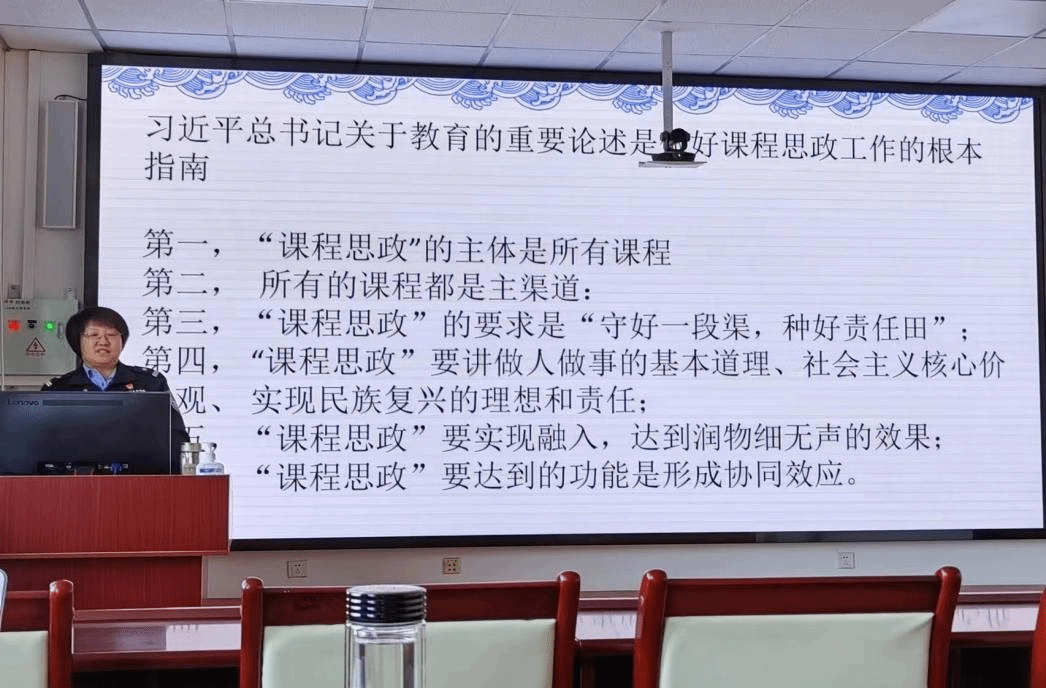 习近平总书记关于教育的重要论述是 好课程思政工作的根本
指南
第一，“课程思政”的主体是所有课程
第二， 所有的课程都是主渠道：
第三，“课程思政”的要求是“守好一段渠，种好责任田”；
第四，“课程思政”要讲做人做事的基本道理、社会主义核心价
观、 实现民族复兴的理想和责任；
“课程思政”要实现融入，达到润物细无声的效果；
“课程思政”要达到的功能是形成协同效应。
Lenovo